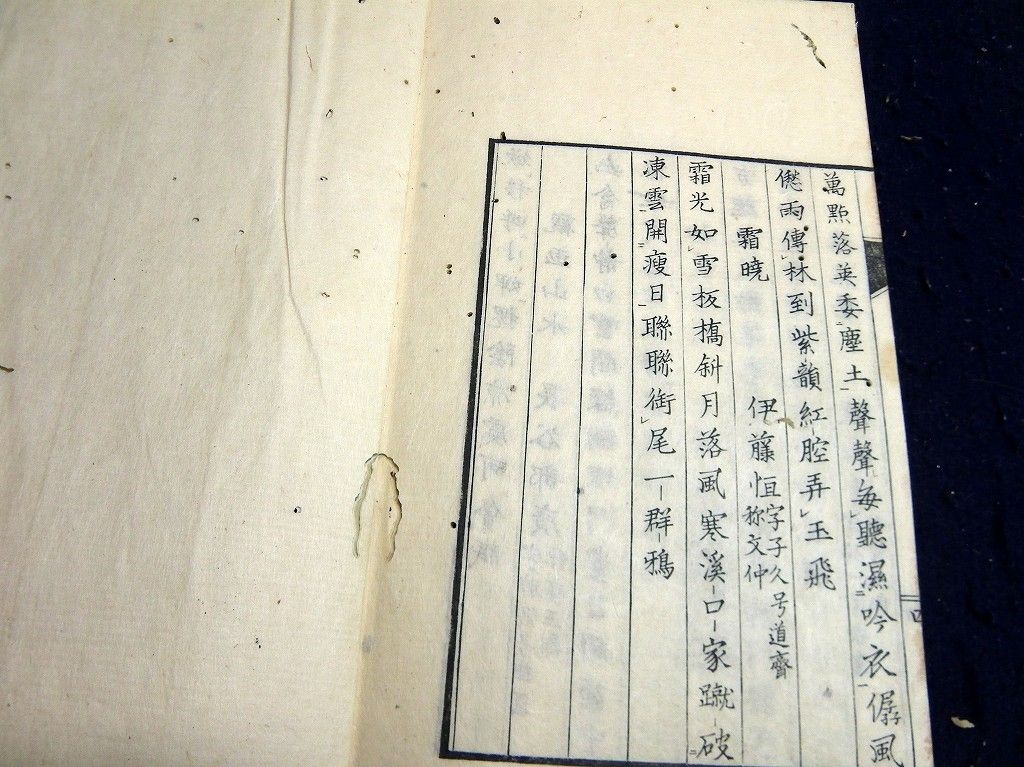 萬點落英委塵土聲聲每聽濕吟衣僝風
僽雨傳林到紫韻紅腔弄玉飛
霜曉 伊藤恒字子久号道齋称文仲
霜光如雪板橋斜月落風寒溪口家蹴破
凍雲開瘦日聯聯銜尾一群鴉
四